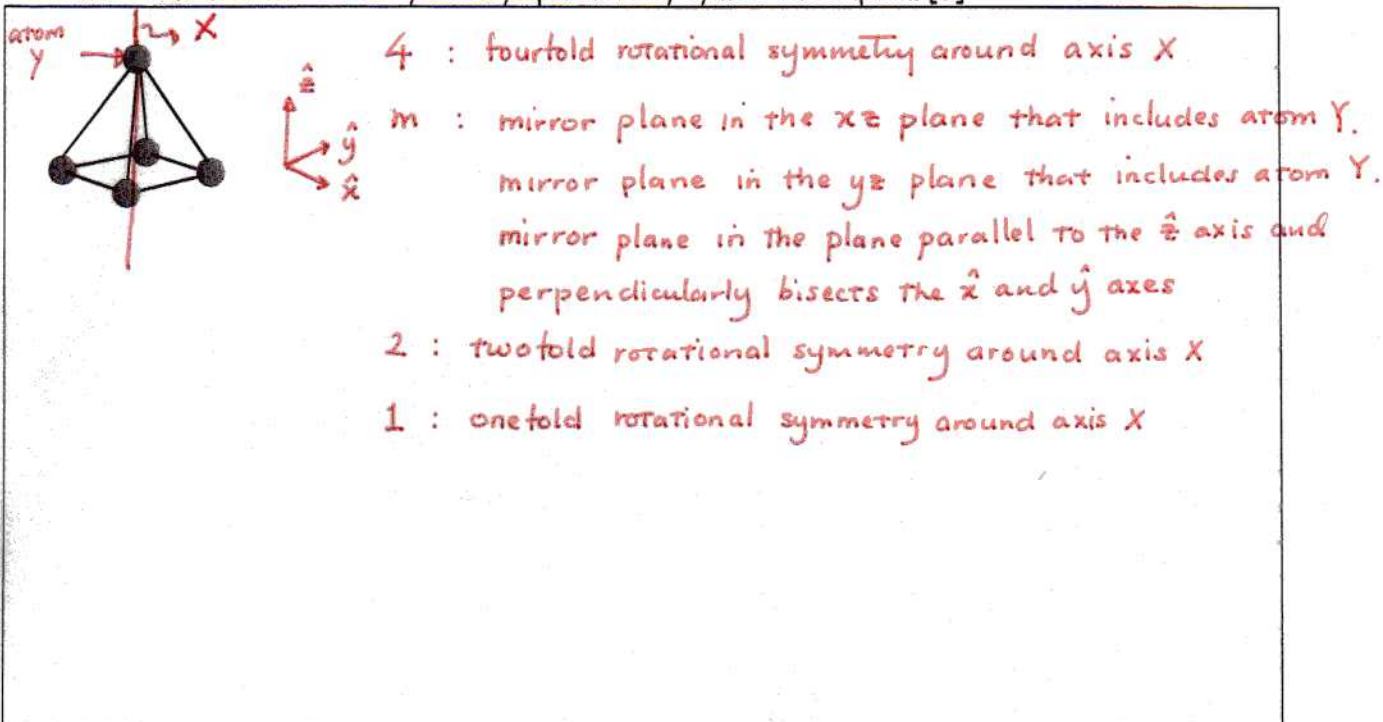 atom
Y
X
ẑ
ŷ
x̂
4 : fourfold rotational symmetry around axis X
m : mirror plane in the xz plane that includes atom Y.
mirror plane in the yz plane that includes atom Y.
mirror plane in the plane parallel to the ẑ axis and
perpendicularly bisects the x̂ and ŷ axes
2 : twofold rotational symmetry around axis X
1 : onefold rotational symmetry around axis X